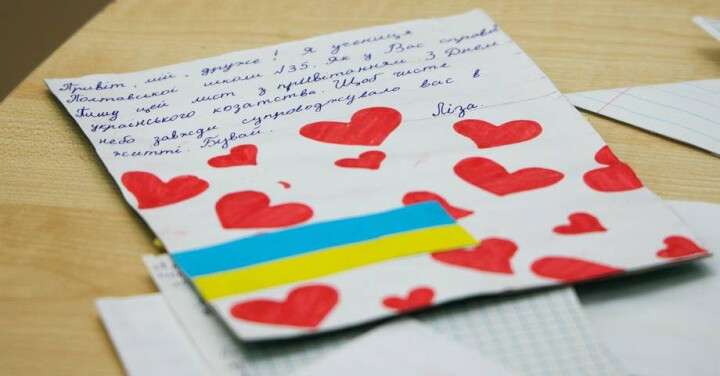 Привіт, мій друже! Я учениця
Полтавської школи №35. Як у Вас справи
Пишу цей лист з привітанням З Днем
українського козатства. Щоб чисте
небо завжди супроводжувало вас в
житті. Бувай.
Ліза.